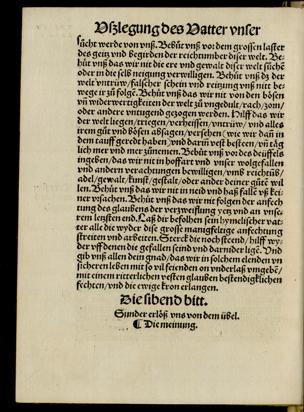 Vßlegung des Vatter vnser
sücht werde von vnß. Behüt vnß vor dem grossen laster
des geitz vnd begirden der reichtumber diser welt. Be-
hüt vnß das wir nit die ere vnd gewalt diser welt süchẽ
oder in die selb neigung verwilligen. Behüt vnß dz der
welt vntrüw/falscher schein vnd reitzung vnß nit be-
wege ir zů folgẽ. Behüt vnß das wir nit von den bösen
vñ widerwertigkeiten der welt zů vngedult/rach/zorn/
oder andere vntugend gezogen werden. Hilff das wir
der welt liegen/triegen/verheissen/vntrüw/vnd alles
irem gůt vnd bösen absagen/versehen (wie wir dañ in
dem tauff geredt haben/vnd darin vest besteen/vñ täg
lich mer vnd mer zůnemen. Behüt vnß vor des teüffels
ingeben/das wir nit in hoffart vnd vnser wolgefallen
vnd andern verachtungen bewilligen/vmb reichtũb/
adel/gewalt/kunst/gestalt/oder ander deiner gůtẽ wil
len. Behüt vnß das wir nit in neid vnd haß falle vß kei
ner vrsachen. Behüt vnß das wir nit folgen der anfech
tung des glaubens der verzweiflung yetz vnd an vnse-
rem letzsten end. Laß dir befolhen sein hymelischer vat-
ter alle die wyder dise grosse manigfeltige anfechtung
streiten vnd arbeiten. Sterck die noch steend/hilff wy-
der vff denen die gefallen seind vnd darnider ligẽ. Vnd
gib vnß allen dein gnad/das wir in solchem elenden vn
sicheren leben mit so vil feienden on vnderlaß vmgebẽ/
mit einem ritterlichen vesten glauben bestendigklichen
fechten/vnd die ewige kron erlangen.
Die sibend bitt.
Sunder erlöß vns von dem übel.
¶ Die meinung.